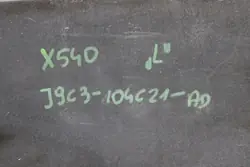 X540 „L"
J9C3-104C21-AD